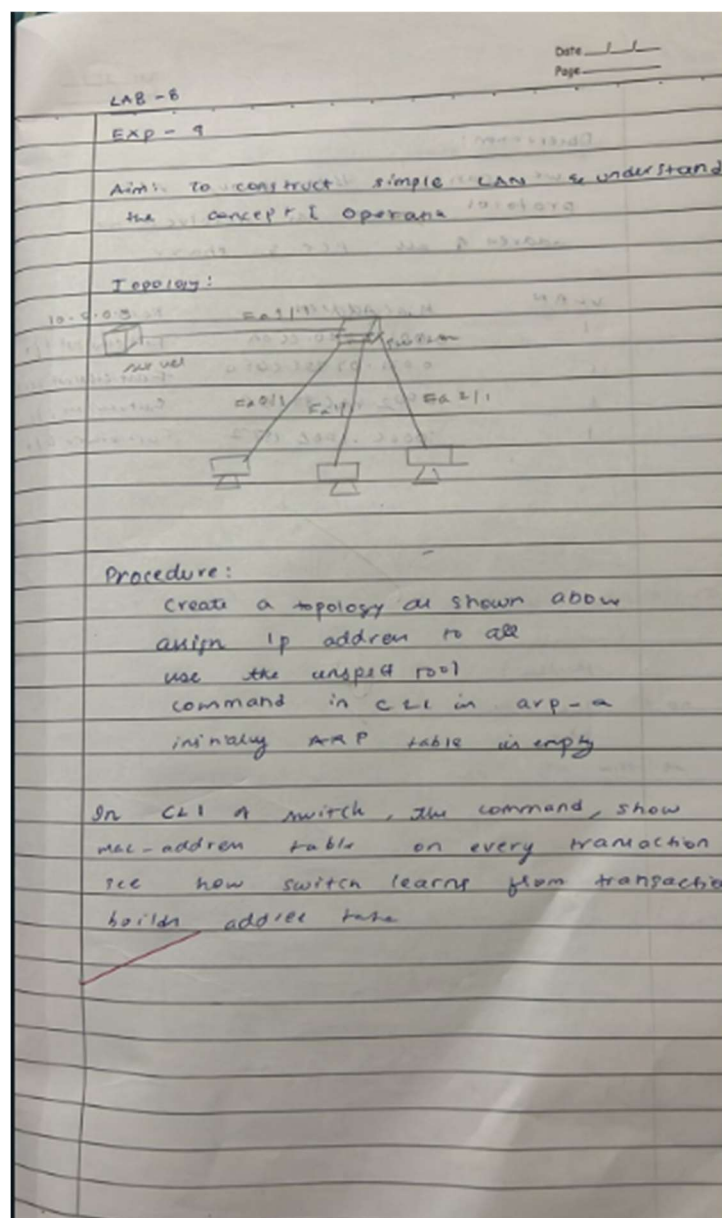 Date / /
Page
LAB - 8
EXP - 9
Aim: To construct simple LAN & understand
the concept &
Topology:
Fa0/1 Fa1/1 Fa2/1
Procedure:
Create a topology as shown above
assign Ip address to all
use the inspect tool
command in CLI is arp-a
initially ARP table is empty
In CLI of switch, the command, show
mac-address table on every transaction
see how switch learns from transaction